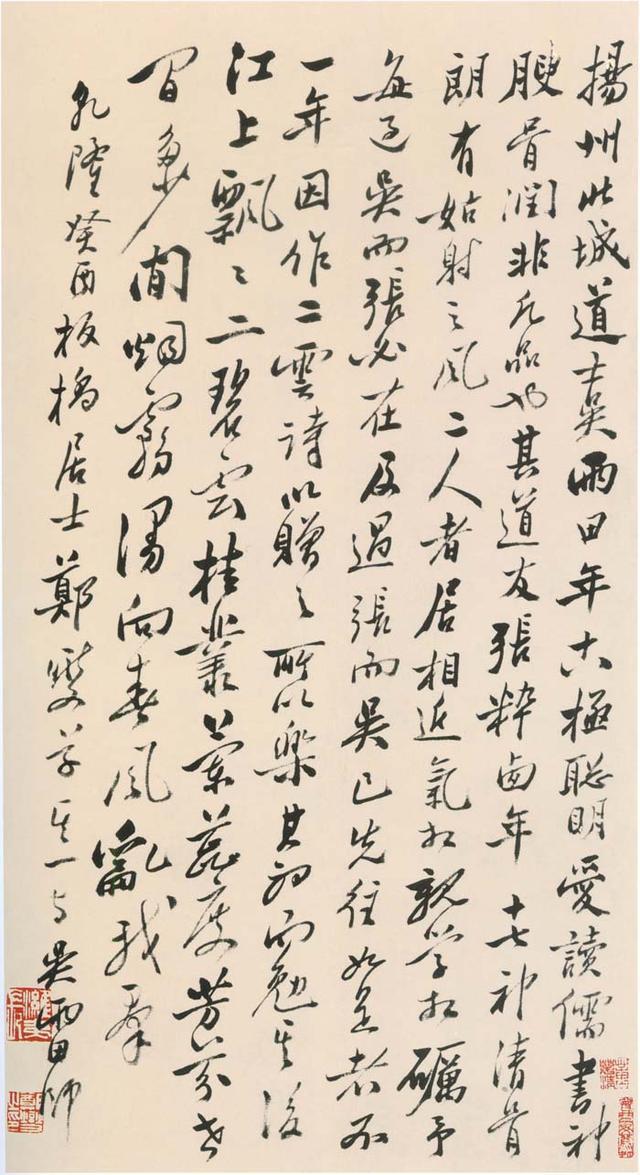 揚州此城道士吳雨田年十六極聰明愛讀儒書神
腴骨潤非凡品也其道友張粹西年十七神清骨
朗有姑射之風二人者居相近氣相親學相礪予
每過吳而張必在及過張而吳已先往如是者不
一年因作二雲詩以贈之所以樂其初而勉其後
江上飄〻二碧雲桂叢蘭蕊度芳芬老
閒烟霧湯向春風亂我群
乾隆癸酉板橋居士鄭燮草其一與吳雨田師